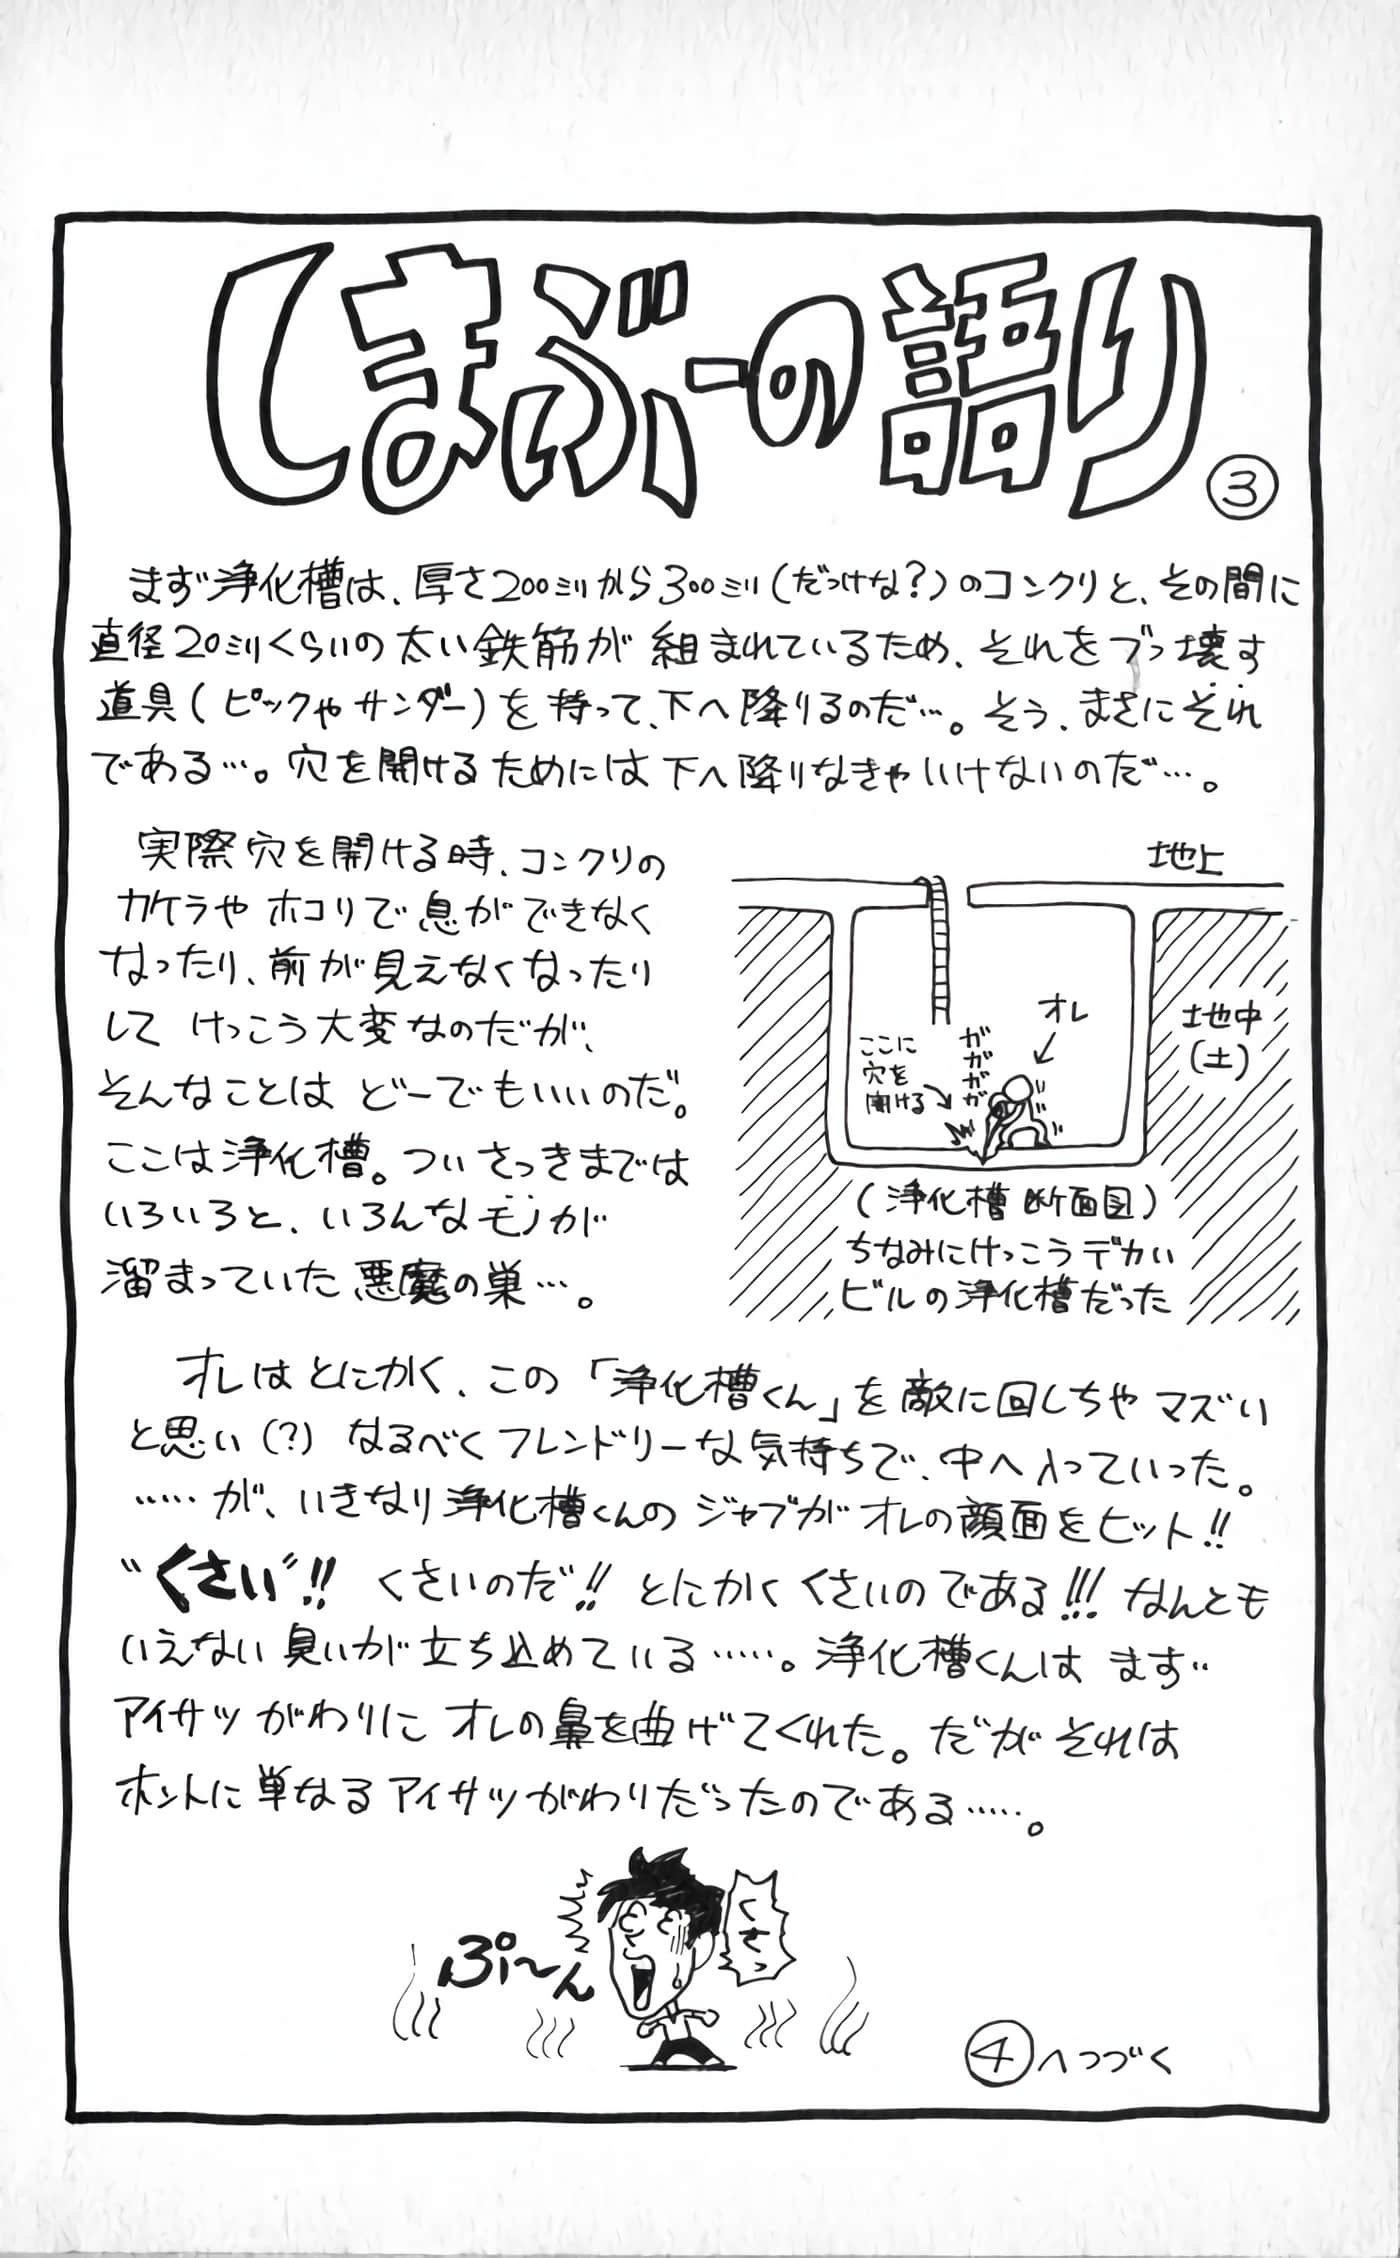 しまぶーの語り
③
まず浄化槽は、厚さ200ミリから300ミリ(だっけな?)のコンクリと、その間に
直径20ミリくらいの太い鉄筋が組まれているため、それをブっ壊す
道具(ピックやサンダー)を持って、下へ降りるのだ…。そう、まさにそれ
である…。穴を開けるためには下へ降りなきゃいけないのだ…。
実際穴を開ける時、コンクリの
カケラやホコリで息ができなく
なったり、前が見えなくなったり
して けっこう大変なのだが、
そんなことは どーでもいいのだ。
ここは浄化槽。ついさっきまでは
いろいろと、いろんなモノが
溜まっていた悪魔の巣…。
地上
オレ
ガガガガ
ここに
穴を
開ける
地中
(土)
(浄化槽断面図)
ちなみにけっこうデカい
ビルの浄化槽だった
オレはとにかく、この「浄化槽くん」を敵に回しちゃマズい
と思い(?) なるべくフレンドリーな気持ちで、中へ入っていった。
……が、いきなり浄化槽くんのジャブがオレの顔面をヒット!!
“くさい”!! くさいのだ!! とにかくくさいのである!!! なんとも
いえない臭いが立ち込めている……。浄化槽くんは まず
アイサツがわりにオレの鼻を曲げてくれた。だがそれは
ホントに単なるアイサツがわりだったのである……。
ぷ〜ん
くさっ
④へつづく